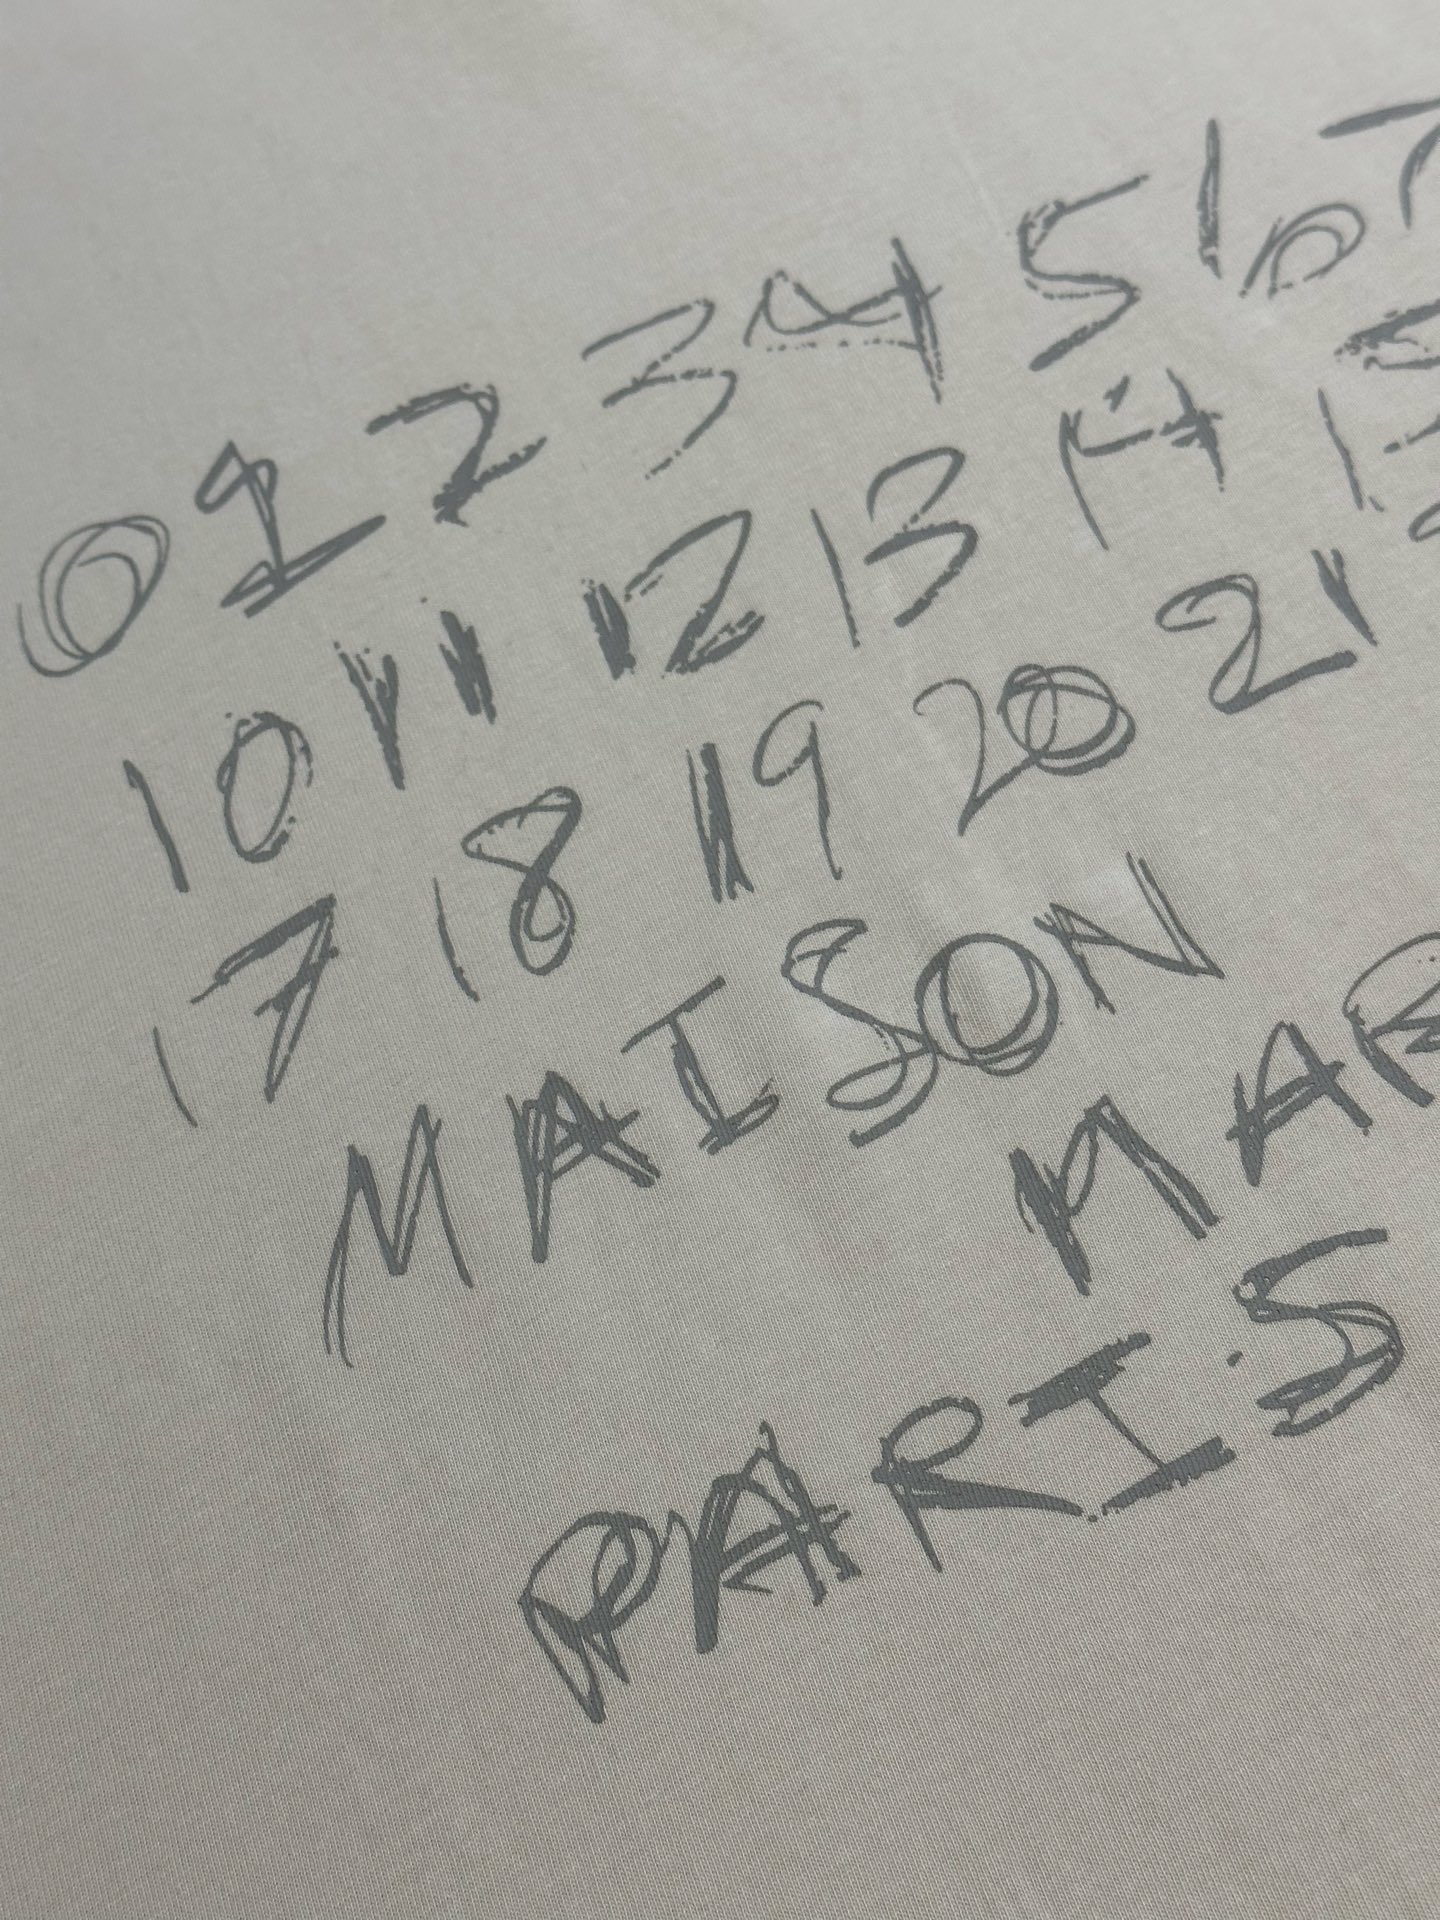 0 1 2 3 4 5 6 7
10 11 12 13 14 15
17 18 19 20 21
MAISON
MAR
PARIS